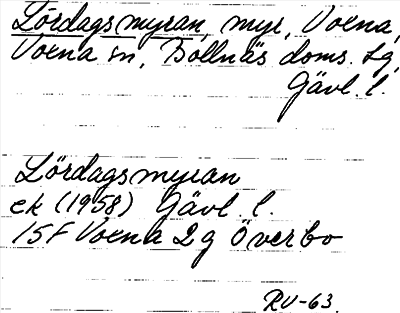 Lördagsmyran, myr, Voxna,
Voxna sn, Bollnäs doms. tg,
Gävl. l.
Lördagsmyran
ek (1958) Gävl. l.
15F Voxna 2g Överbo
RV-63.